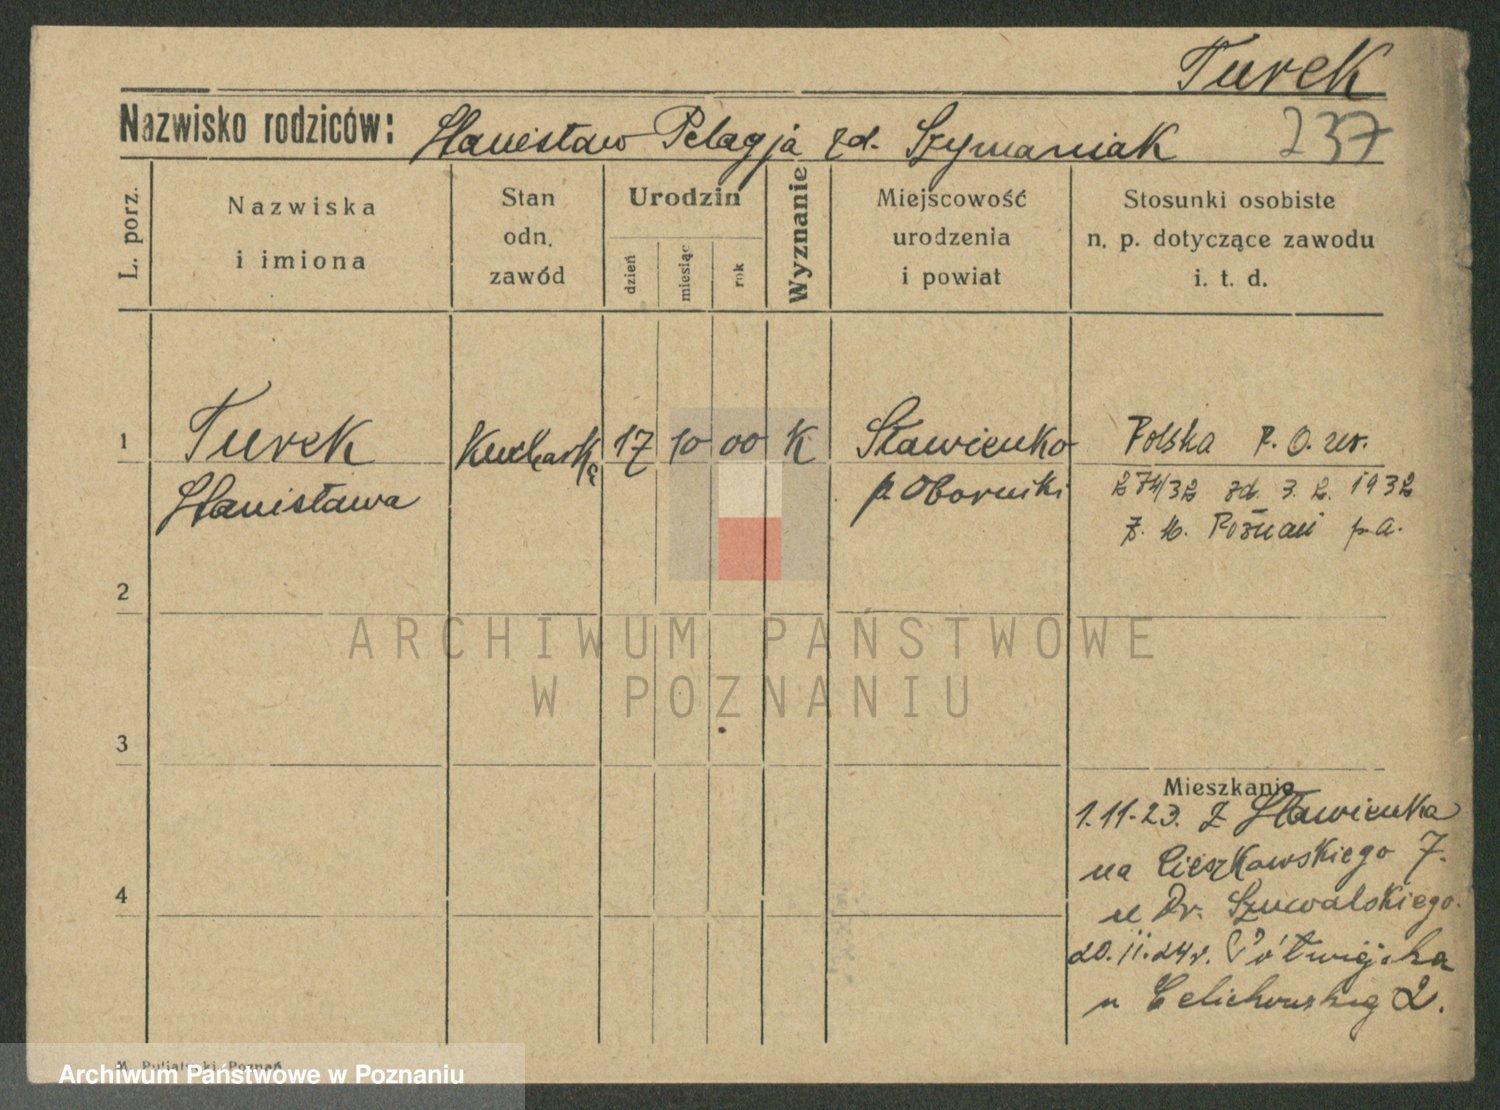 Turek
Nazwisko rodziców: Stanisław Pelagja zd. Szymaniak 237
L. porz.
Nazwiska i imiona
Stan odn. zawód
Urodzin
dzień
miesiąc
rok
Wyznanie
Miejscowość urodzenia i powiat
Stosunki osobiste n. p. dotyczące zawodu i. t. d.
1 Turek Kucharka 17 10 00 K Sławienko Polska P. O. zw.
Stanisława p. Oborniki 274/32 zd. 3. 2. 1932
Z. M. Poznań p. a.
2
3
4
Mieszkanie
1.11.23. Z Sławienka
na Cieszkowskiego 7.
u Dr. Szuwalskiego.
20.11.24r. Półwiejska
u Celichowskig 2.
ARCHIWUM PAŃSTWOWE
W POZNANIU
Archiwum Państwowe w Poznaniu